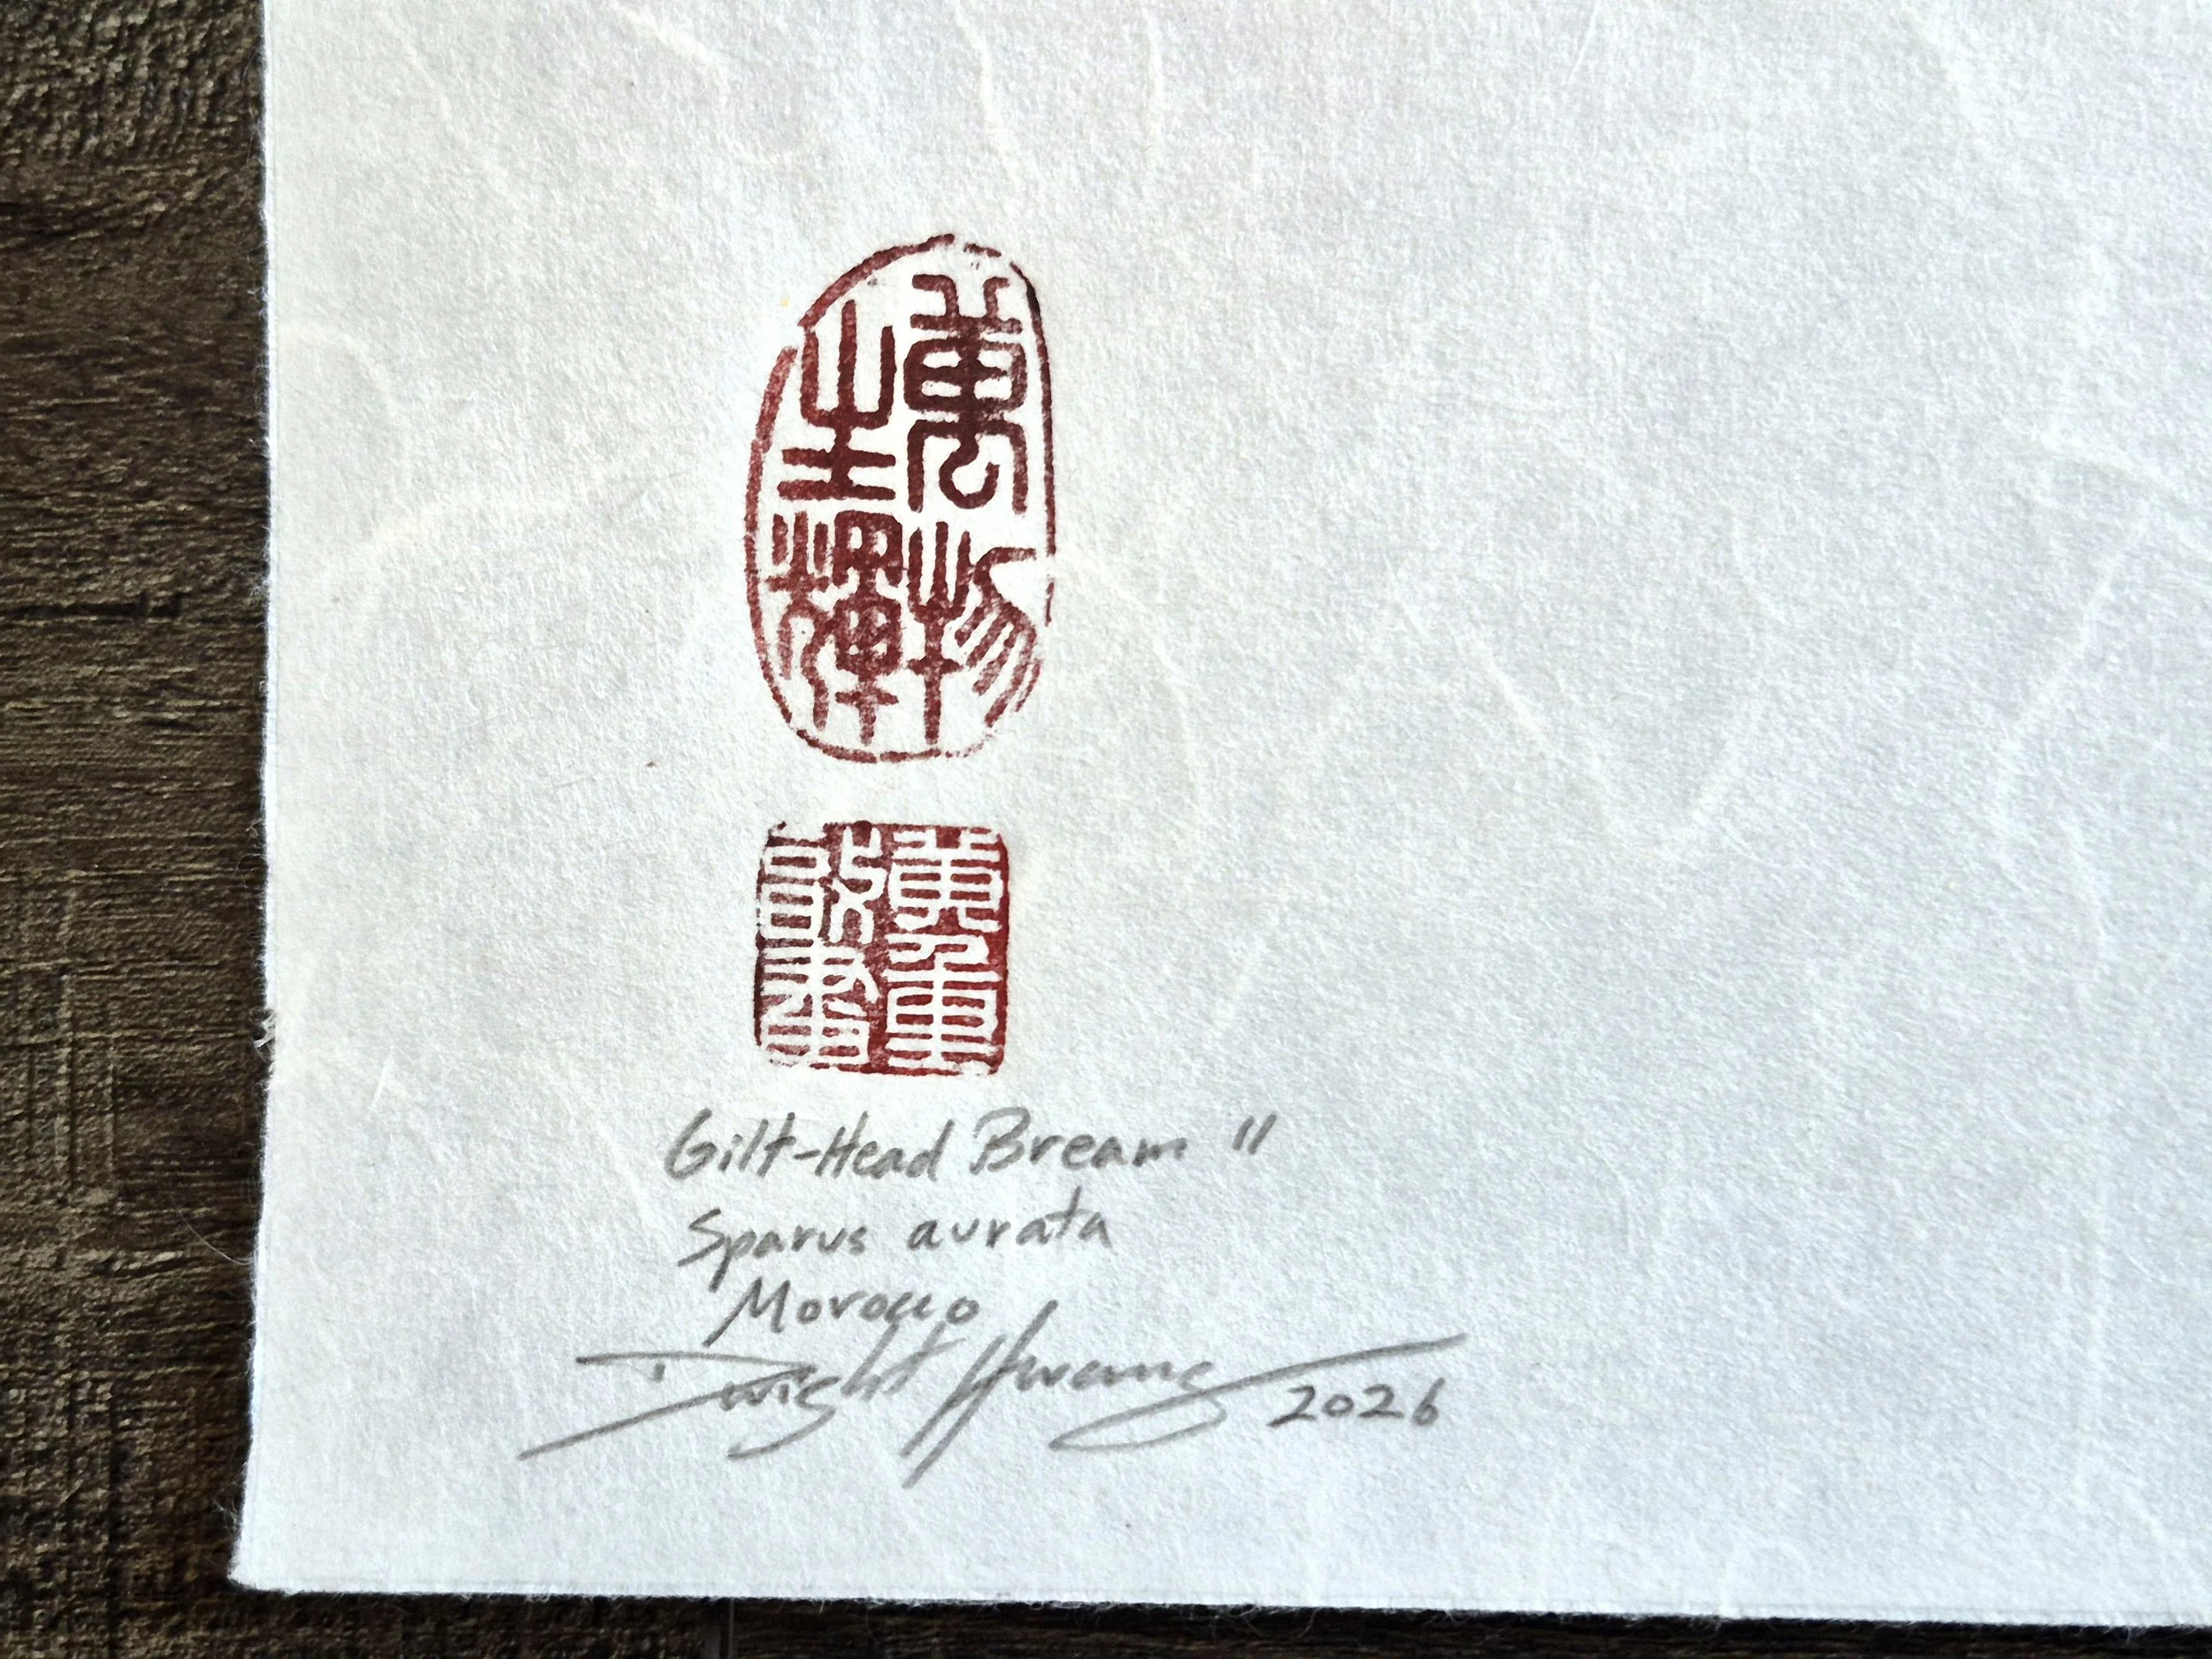 萬物
生輝
Gilt-Head Bream II
Sparus aurata
Morocco
Dwight Hwang 2026